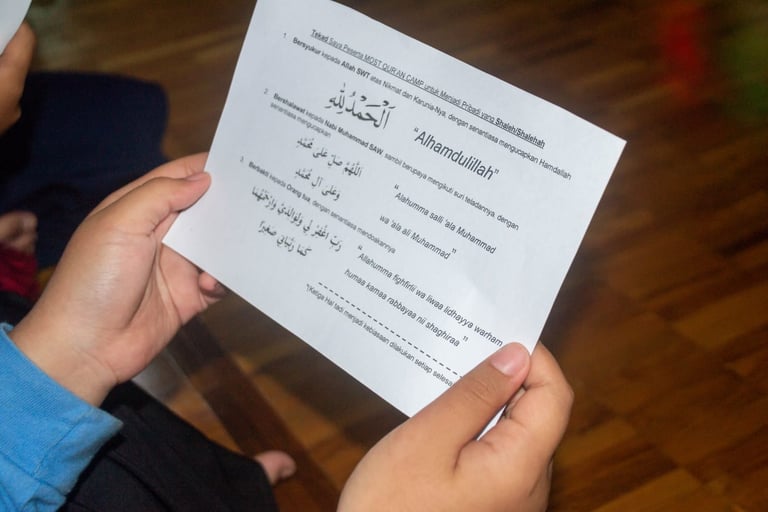 Tekad Saya Peserta MOST QUR'AN CAMP untuk Menjadi Pribadi yang Shaleh/Shalehah
1. Bersyukur kepada Allah SWT atas Nikmat dan Karunia-Nya, dengan senantiasa mengucapkan Hamdallah
اَلْحَمْدُ لِلّٰهِ
"Alhamdulillah"
2. Bershalawat kepada Nabi Muhammad SAW, sambil berupaya mengikuti suri teladannya, dengan
senantiasa mengucapkan
اَللّٰهُمَّ صَلِّ عَلَى مُحَمَّدٍ
وَعَلَى اٰلِ مُحَمَّدٍ
"Alahumma salli 'ala Muhammad
wa 'ala ali Muhammad"
3. Berbakti kepada Orang tua, dengan senantiasa mendoakannya
رَبِّ اغْفِرْ لِي وَلِوَالِدَيَّ وَارْحَمْهُمَا
كَمَا رَبَّيَانِي صَغِيْرًا
"Allahumma fighfirlii wa liwaa lidhayya warham
humaa kamaa rabbayaa nii shaghiraa"
*Ketiga Hal tadi menjadi kebiasaan dilakukan setiap selesai